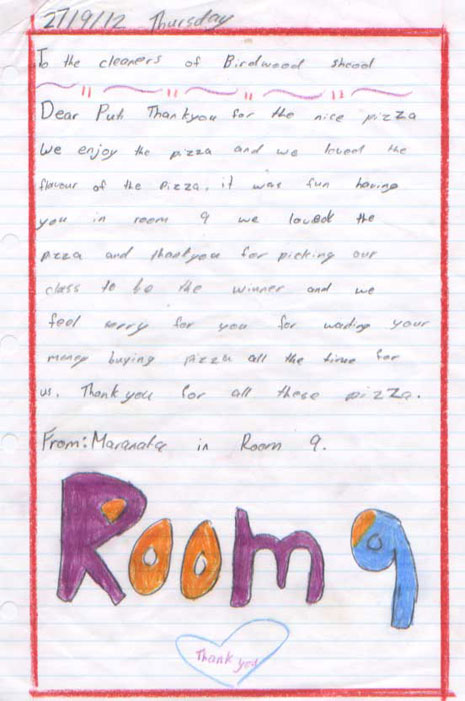 27/9/12 Thursday
To the cleaners of Birdwood shcool
Dear Puti Thankyou for the nice pizza
We enjoy the pizza and we loved the
flavour of the pizza. it was fun having
you in room 9 we loved the
pizza and thankyou for picking our
class to be the winner and we
feel sorry for you for wasting your
money buying pizza all the time for
us. Thank you for all these pizza.
From: Maranata in Room 9.
Room 9
Thank you